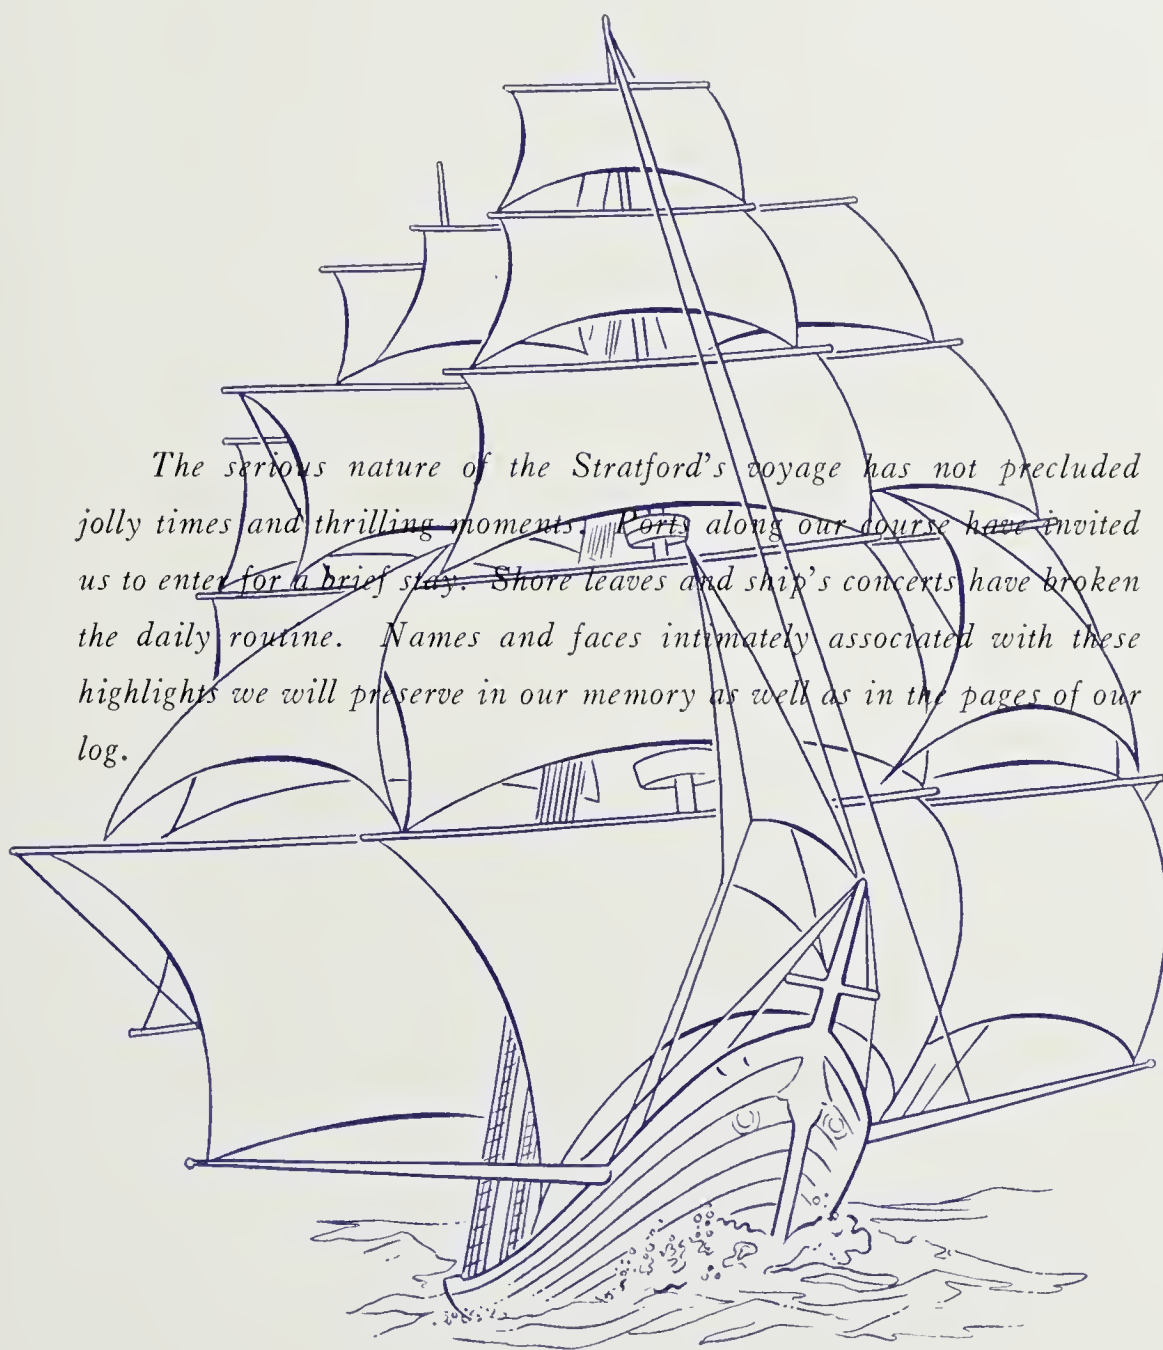 The serious nature of the Stratford's voyage has not precluded
jolly times and thrilling moments. Ports along our course have invited
us to enter for a brief stay. Shore leaves and ship's concerts have broken
the daily routine. Names and faces intimately associated with these
highlights we will preserve in our memory as well as in the pages of our
log.